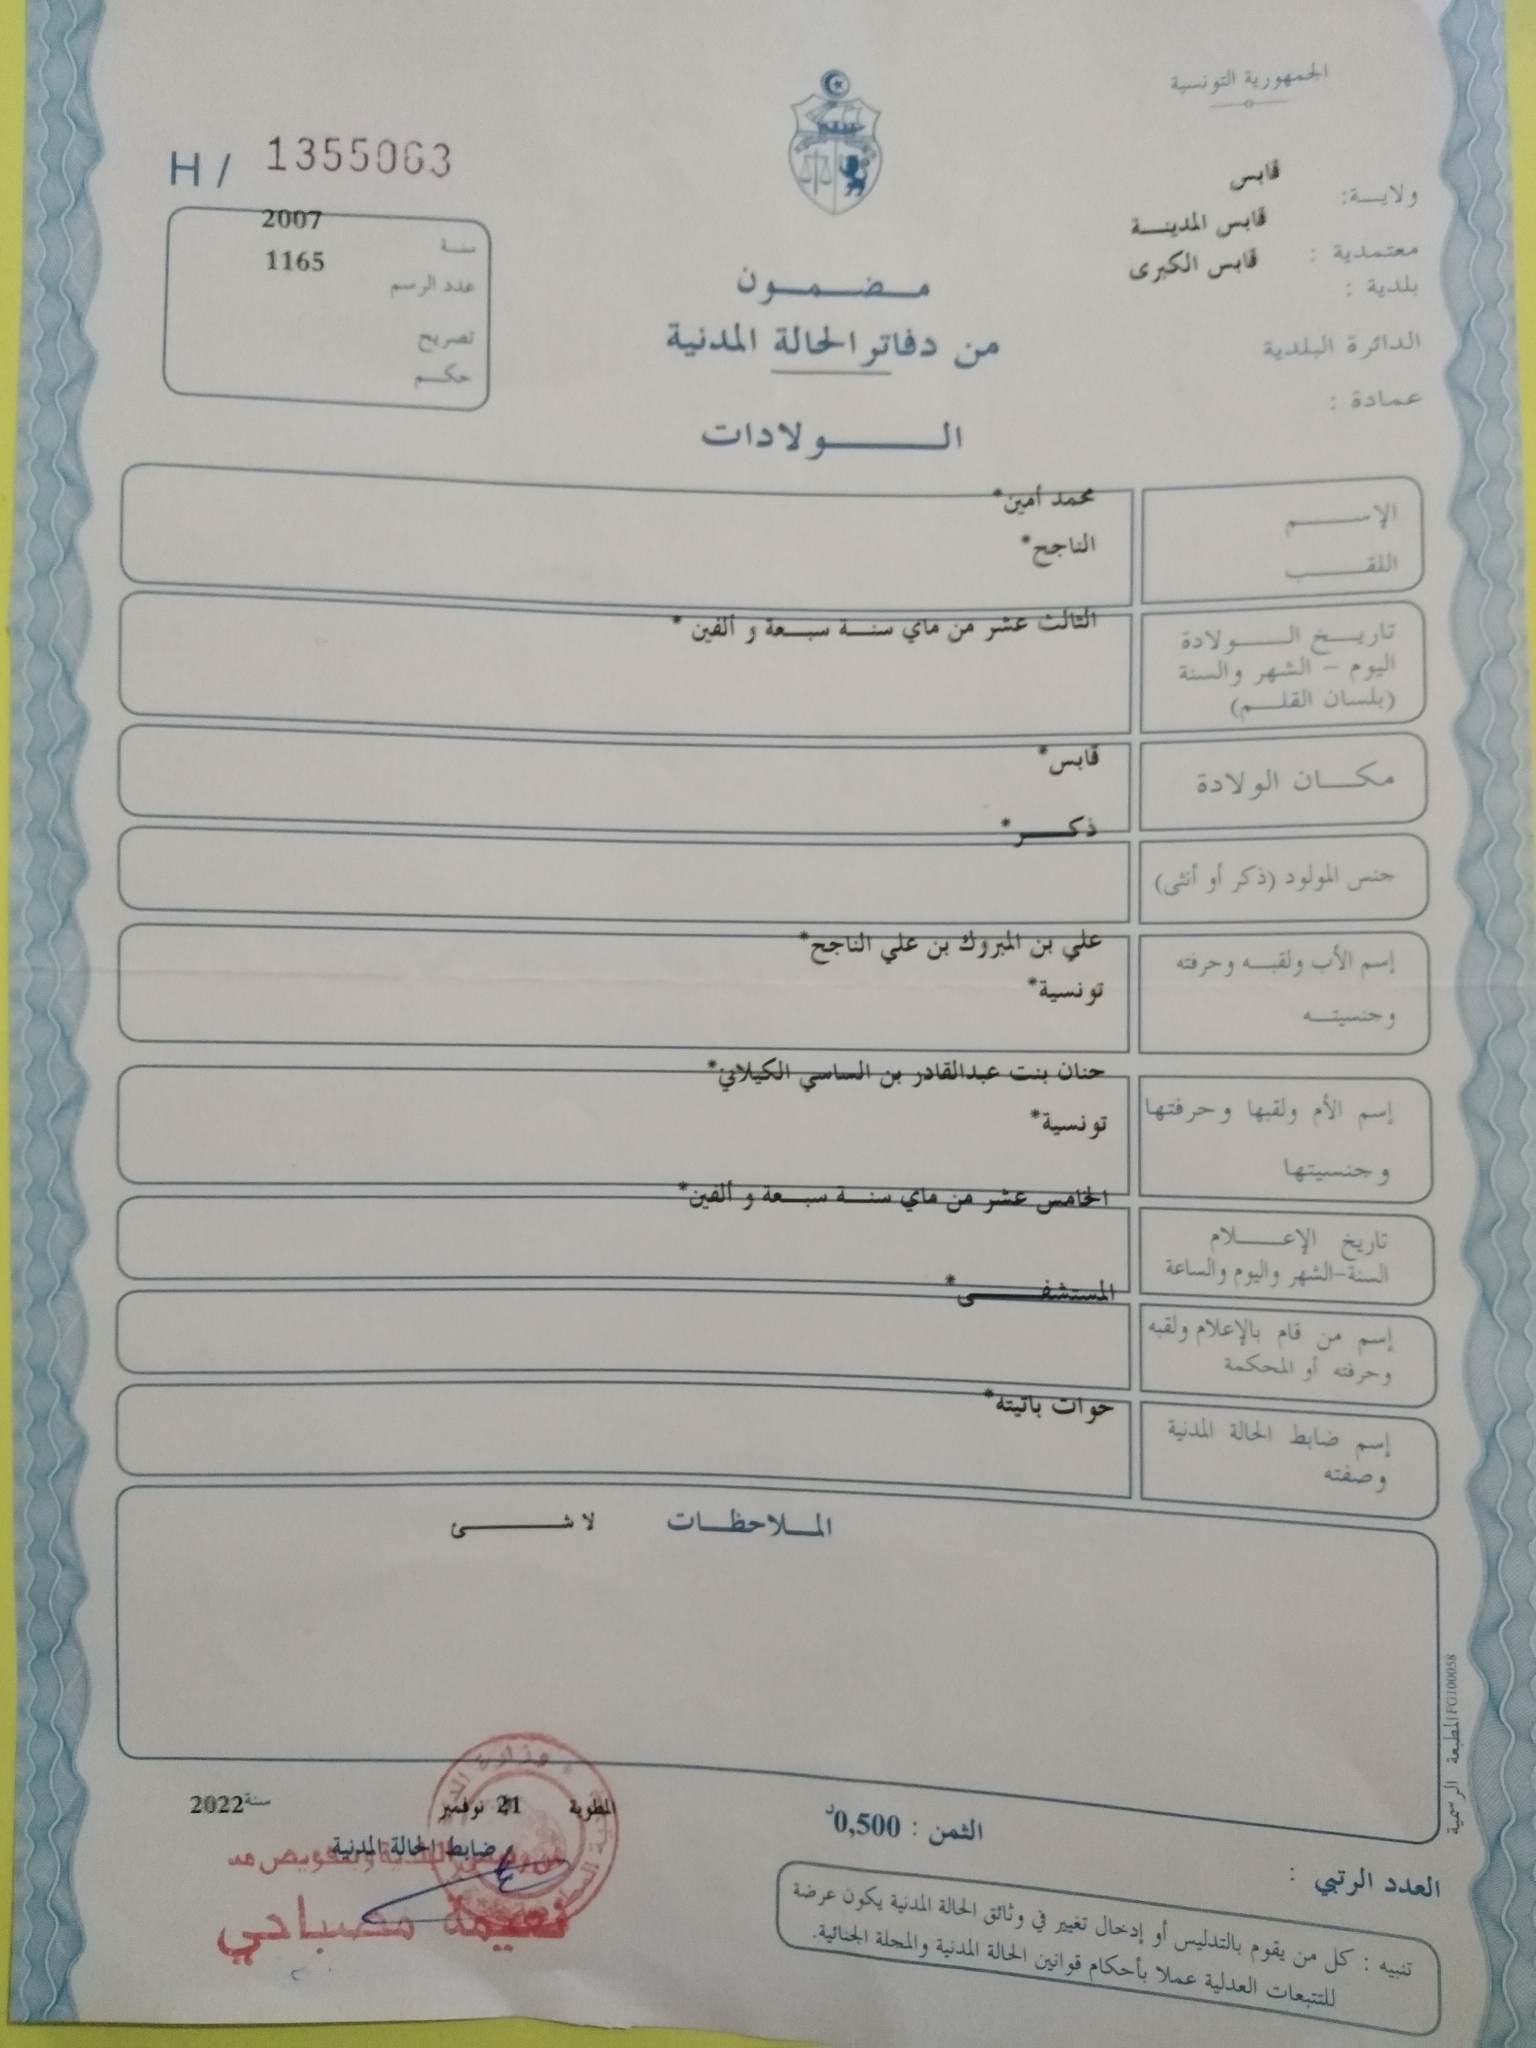 الجمهورية التونسية
H / 1355063
ولاية: قابس
معتمدية : قابس المدينة
بلدية : قابس الكبرى
الدائرة البلدية
عمادة :
سنة 2007
عدد الرسم 1165
تصريح
حكم
مضمون
من دفاتر الحالة المدنية
الولادات
الإسم محمد أمين*
اللقب الناجح*
تاريخ الولادة الثالث عشر من ماي سنة سبعة و ألفين *
اليوم - الشهر والسنة
(بلسان القلم)
مكان الولادة قابس*
جنس المولود (ذكر أو أنثى) ذكر*
إسم الأب ولقبه وحرفته علي بن المبروك بن علي الناجح*
وجنسيته تونسية*
إسم الأم ولقبها وحرفتها حنان بنت عبدالقادر بن الساسي الكيلاني*
وجنسيتها تونسية*
تاريخ الإعلام الخامس عشر من ماي سنة سبعة و ألفين*
السنة-الشهر واليوم والساعة
إسم من قام بالإعلام ولقبه المستشفى*
وحرفته أو المحكمة
إسم ضابط الحالة المدنية حوات باتيته*
وصفته
الملاحظات لا شئ
المطبعة الرسمية FG100058
المطوية 21 نوفمبر سنة 2022
ضابط الحالة المدنية
نعيمة مصباحي
الثمن : 0,500د
العدد الرتبي :
تنبيه : كل من يقوم بالتدليس أو إدخال تغيير في وثائق الحالة المدنية يكون عرضة
للتتبعات العدلية عملا بأحكام قوانين الحالة المدنية والمجلة الجنائية.